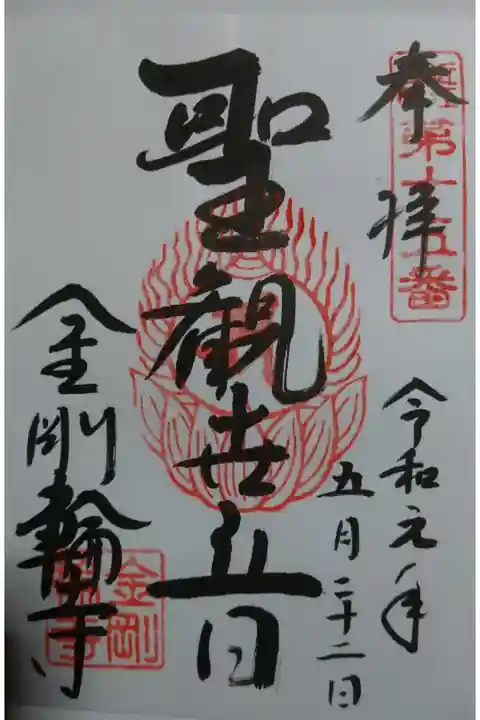 奉拝
第十五番
令和元年
五月二十二日
聖観世音
金剛輪寺
金剛
輪寺